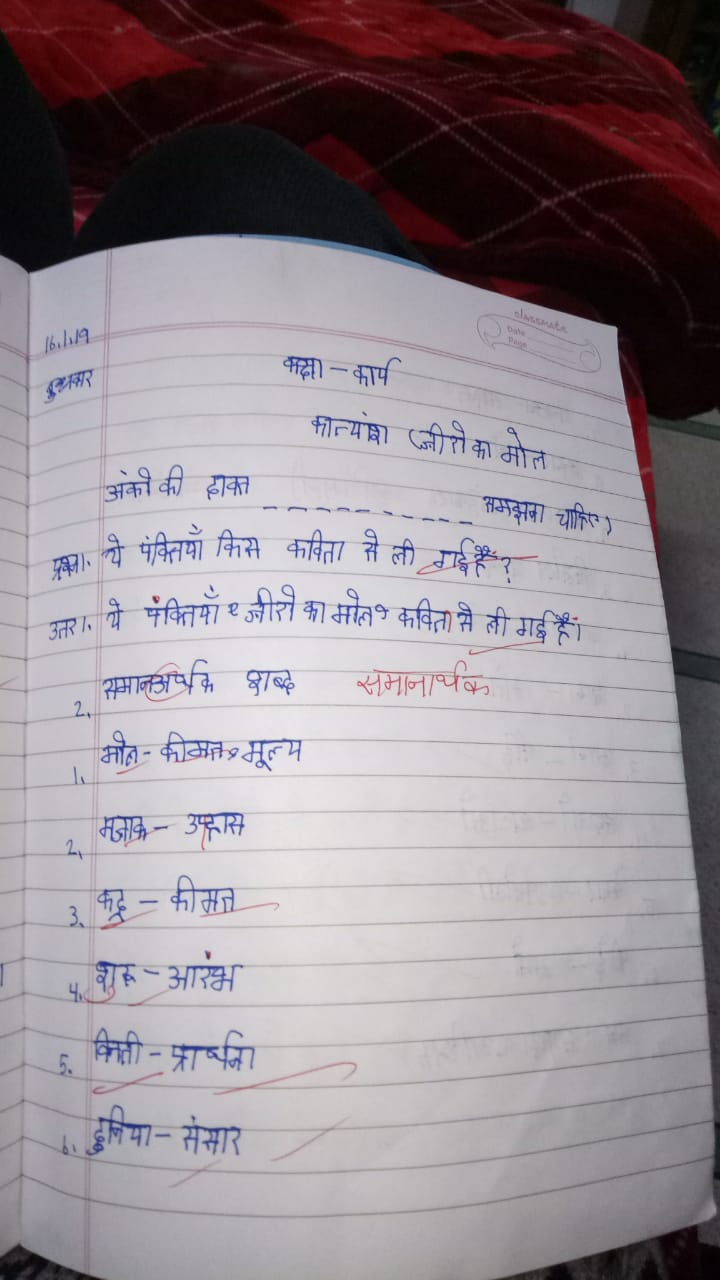 classmate
Date
Page
16.1.19
बुधवार
कक्षा - कार्य
काव्यांश (जीरो का मोल
अंको की दावत ---------- समझना चाहिए)
प्रश्न1. ये पंक्तियाँ किस कविता से ली गई हैं?
उत्तर1. ये पंक्तियाँ जीरो का मोल कविता से ली गई हैं।
2. समानअर्थक शब्द समानार्थक
1. मोल - कीमत, मूल्य
2. मजाक - उपहास
3. कद्र - कीमत
4. शुरू - आरंभ
5. विनती - प्रार्थना
6. दुनिया - संसार